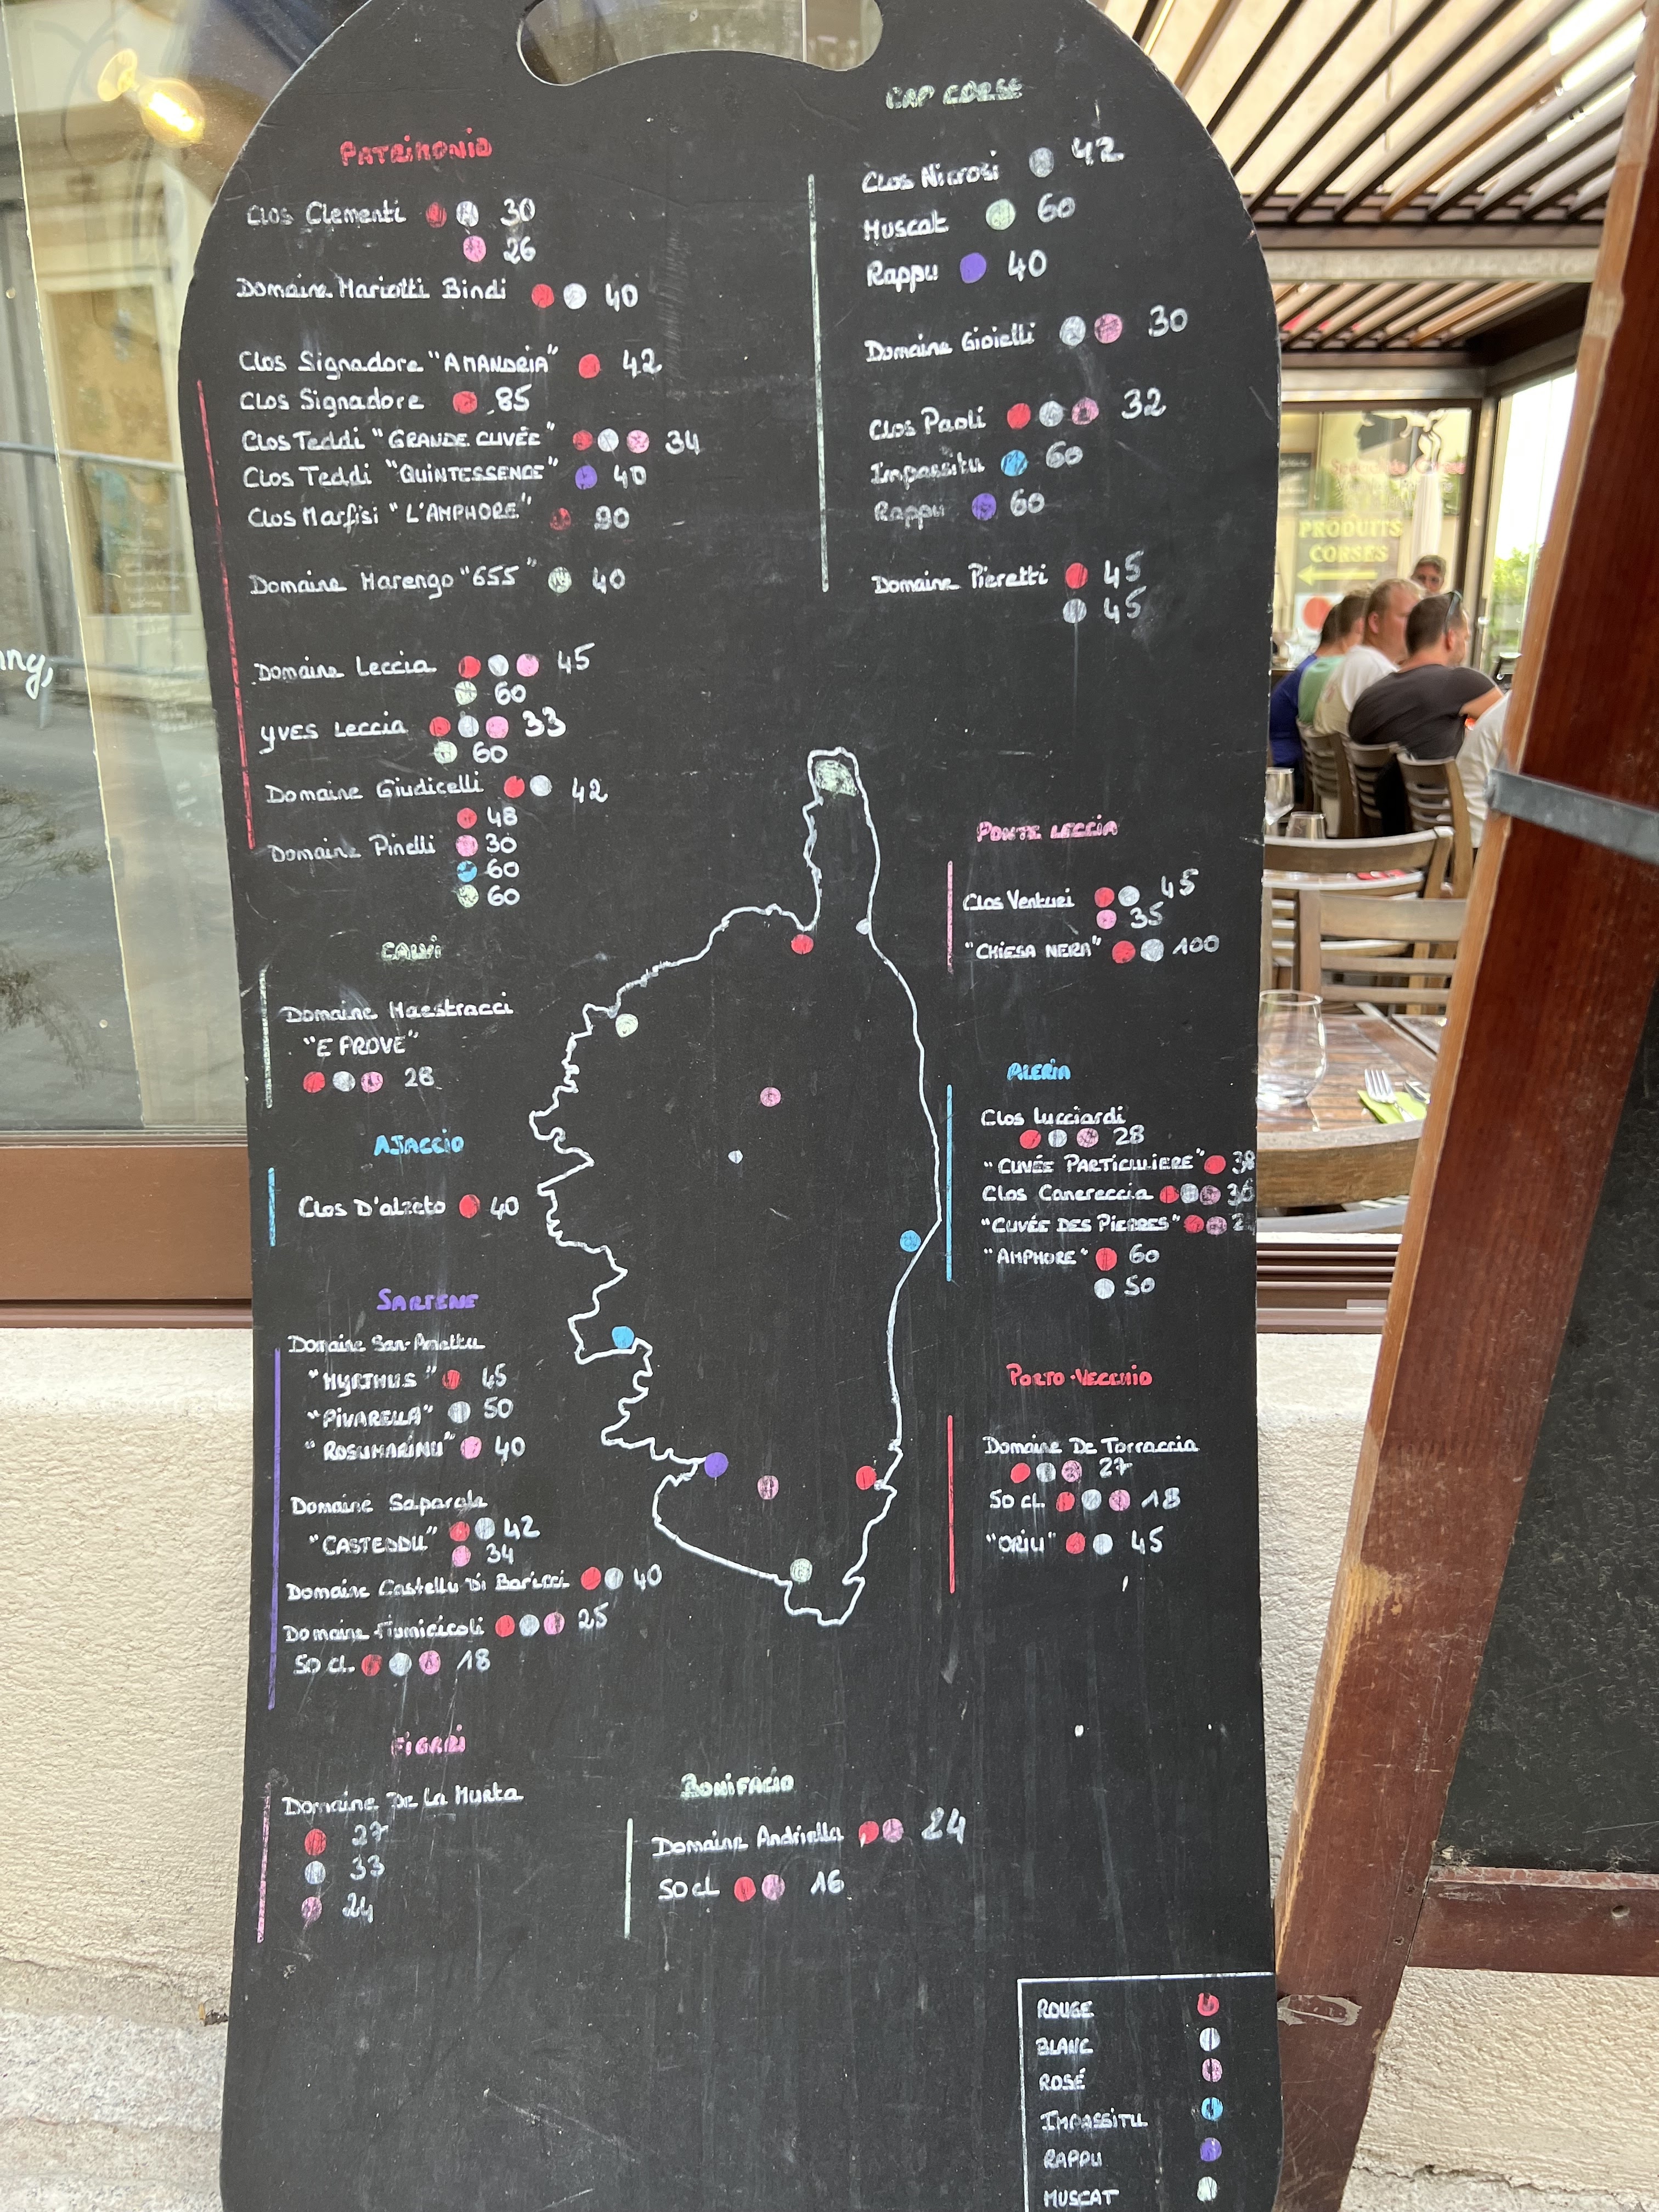 PATRIMONIO
Clos Clementi 30
26
Domaine Mariotti Bindi 40
Clos Signadore "AMANDRIA" 42
Clos Signadore 85
Clos Teddi "GRANDE CUVÉE" 34
Clos Teddi "QUINTESSENCE" 40
Clos Marfisi "L'AMPHORE" 90
Domaine Marengo "655" 40
Domaine Leccia 45
60
YVES Leccia 33
60
Domaine Giudicelli 42
48
Domaine Pinelli 30
60
60
CALVI
Domaine Maestracci
"E PROVE"
28
AJACCIO
Clos D'alzeto 40
SARTENE
Domaine San-Armettu
"MYRTHUS" 45
"PIVARELLA" 50
"ROSUMARINU" 40
Domaine Saparale
"CASTEDDU" 42
34
Domaine Castellu Di Baricci 40
Domaine Fiumicicoli 25
50 cl. 18
FIGARI
Domaine De La Murta
27
33
24
CAP CORSE
Clos Nicrosi 42
Muscat 60
Rappu 40
Domaine Gioielli 30
Clos Paoli 32
Impassitu 60
Rappu 60
Domaine Pieretti 45
45
PONTE LECCIA
Clos Venturi 45
35
"CHIESA NERA" 100
ALERIA
Clos Lucciardi
28
"CUVÉE PARTICULIERE" 38
Clos Canereccia 36
"CUVÉE DES PIERRES"
"AMPHORE" 60
50
PORTO-VECCHIO
Domaine De Torraccia
27
50 cl. 18
"ORIU" 45
BONIFACIO
Domaine Andriella 24
50 cl 16
ROUGE
BLANC
ROSÉ
IMPASSITU
RAPPU
MUSCAT
PRODUITS
CORSES